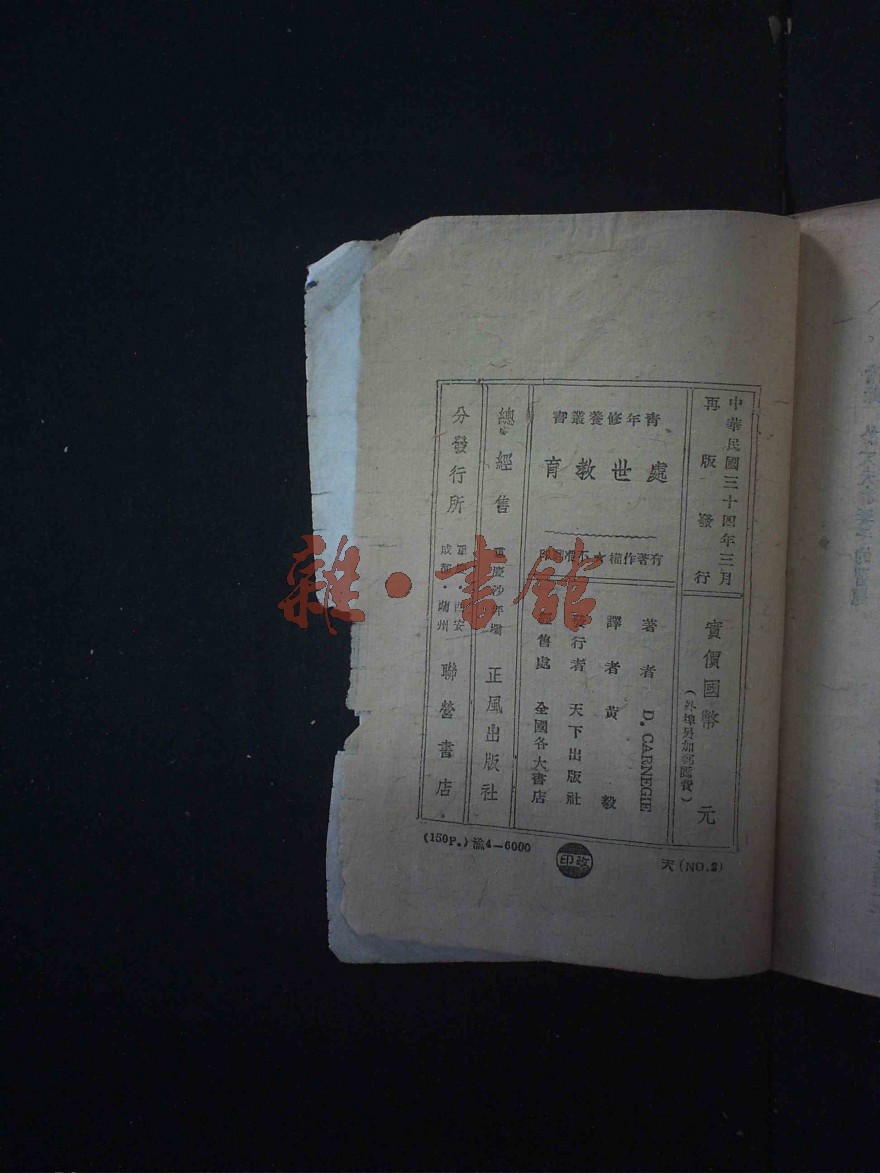 中華民國三十四年三月
再版發行
實價國幣 元
(外埠另加郵匯費)
青年修養叢書
處世教育
有著作權★不准翻印
著者 D. CARNEGIE
譯者 黃毅
發行者 天下出版社
售處 全國各大書店
總經售 重慶沙坪壩 正風出版社
分發行所
西安
成都·蘭州
聯營書店
(150P.) 渝4—6000
印改
天(NO.2)
雜·書館